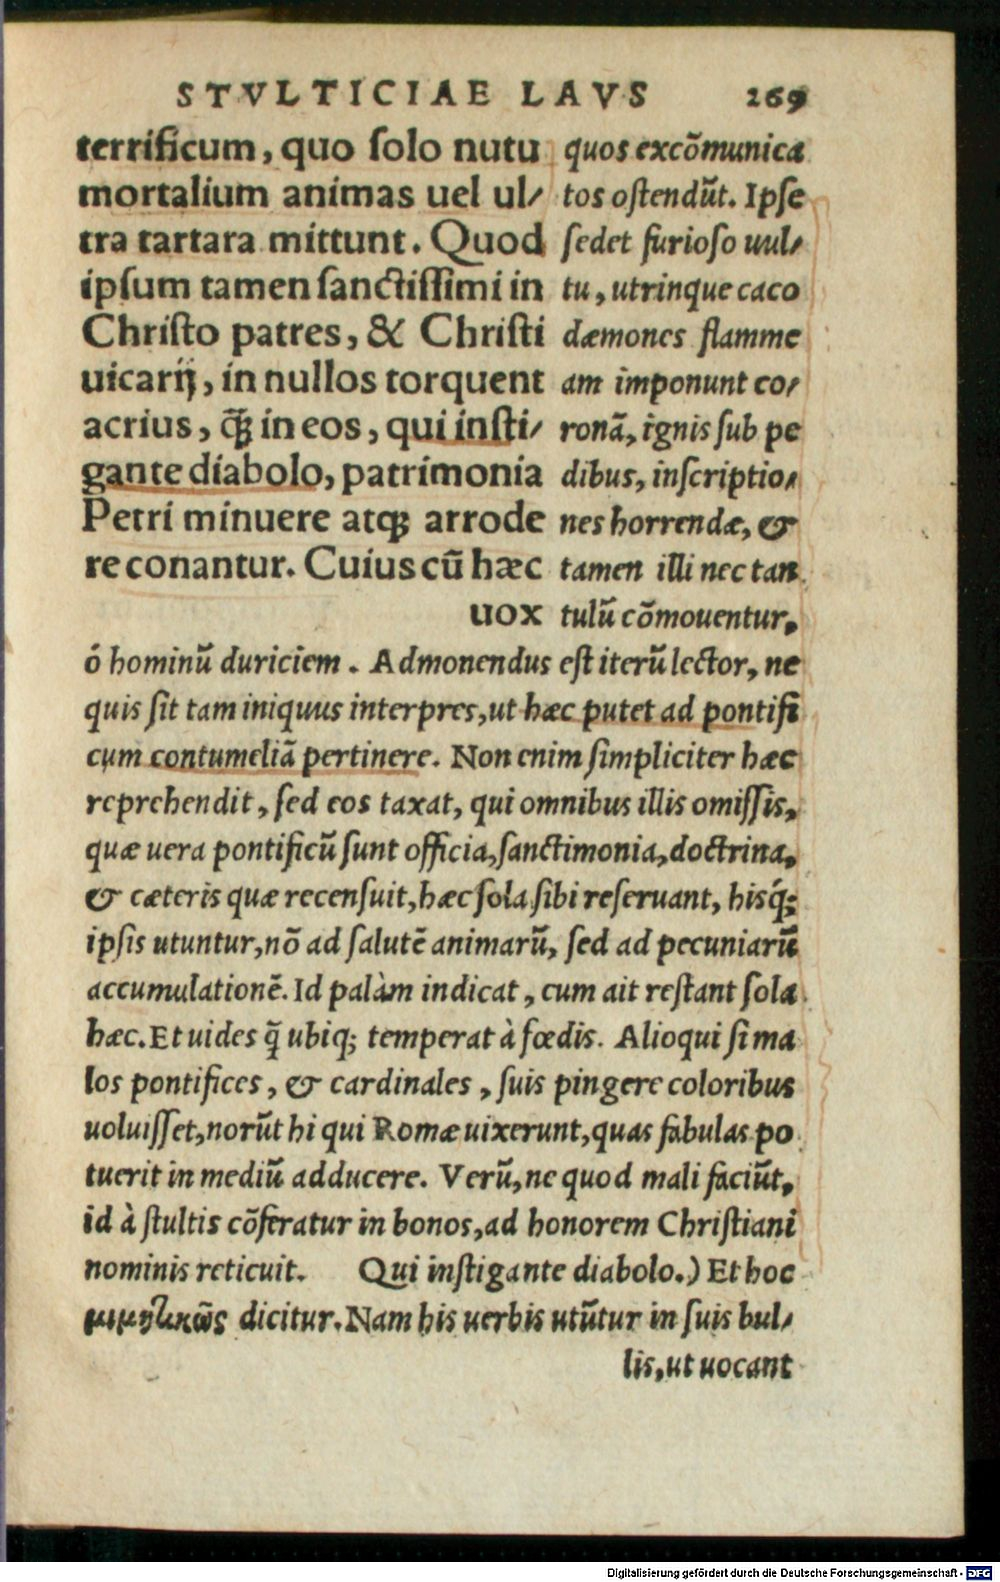 STVLTICIAE LAVS 269
terrificum, quo ſolo nutu
mortalium animas uel ul/
tra tartara mittunt. Quod
ipſum tamen ſanctiſſimi in
Chriſto patres, & Chriſti
uicarij, in nullos torquent
acrius, q̃ꝫ in eos, qui inſti/
gante diabolo, patrimonia
Petri minuere atqꝫ arrode
re conantur. Cuius cũ hæc
uox
quos excõmunica
tos oſtendũt. Ipſe
ſedet furioſo uul/
tu, utrinque caco
dæmones flamme
am imponunt co/
ronã, ignis ſub pe
dibus, inſcriptio/
nes horrendæ, &
tamen illi nec tan
tulũ cõmouentur,
ô hominũ duriciem. Admonendus eſt iterũ lector, ne
quis ſit tam iniquus interpres, ut hæc putet ad pontifi
cum contumeliã pertinere. Non enim ſimpliciter hæc
reprehendit, ſed eos taxat, qui omnibus illis omiſſis,
quæ uera pontificũ ſunt officia, ſanctimonia, doctrina,
& cæteris quæ recenſuit, hæc ſola ſibi reſeruant, hisq́ꝫ
ipſis utuntur, nõ ad ſalutẽ animarũ, ſed ad pecuniarũ
accumulationẽ. Id palàm indicat, cum ait reſtant ſola
hæc. Et uides q̃ ubiqꝫ temperat à fœdis. Alioqui ſi ma
los pontifices, & cardinales, ſuis pingere coloribus
uoluiſſet, norũt hi qui Romæ uixerunt, quas fabulas po
tuerit in mediũ adducere. Verũ, ne quod mali faciũt,
id à ſtultis cõferatur in bonos, ad honorem Chriſtiani
nominis reticuit. Qui inſtigante diabolo.) Et hoc
μιμητικῶς dicitur. Nam his uerbis utũtur in ſuis bul/
lis, ut uocant
Digitalisierung gefördert durch die Deutsche Forschungsgemeinschaft - DFG